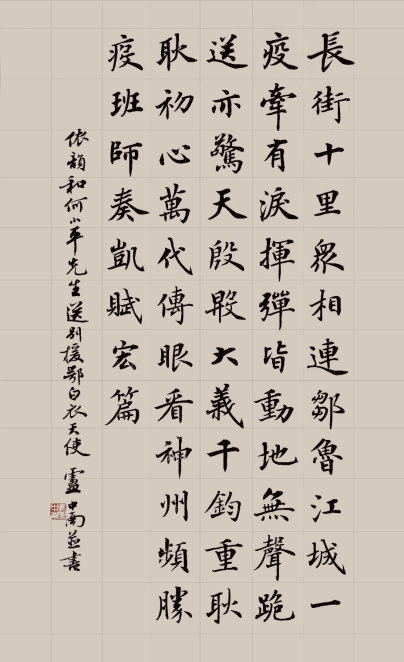 長街十里衆相連鄒魯江城一
疫牽有淚揮彈皆動地無聲跪
送亦驚天殷殷大義千鈞重耿
耿初心萬代傳眼看神州頻勝
疫班師奏凱賦宏篇
依韻和何小平先生送别援鄂白衣天使 盧中南並書